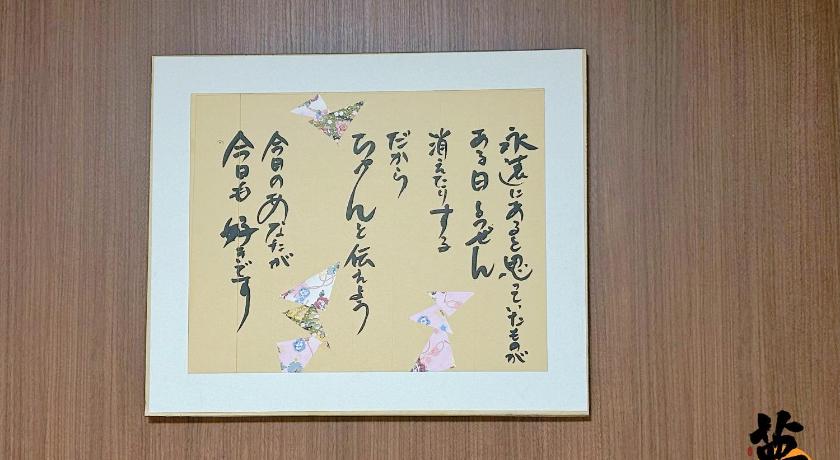 永遠にあると思っていたものが
ある日とつぜん
消えたりする
だから
ちゃんと伝えよう
今日のあなたが
今日も好きです